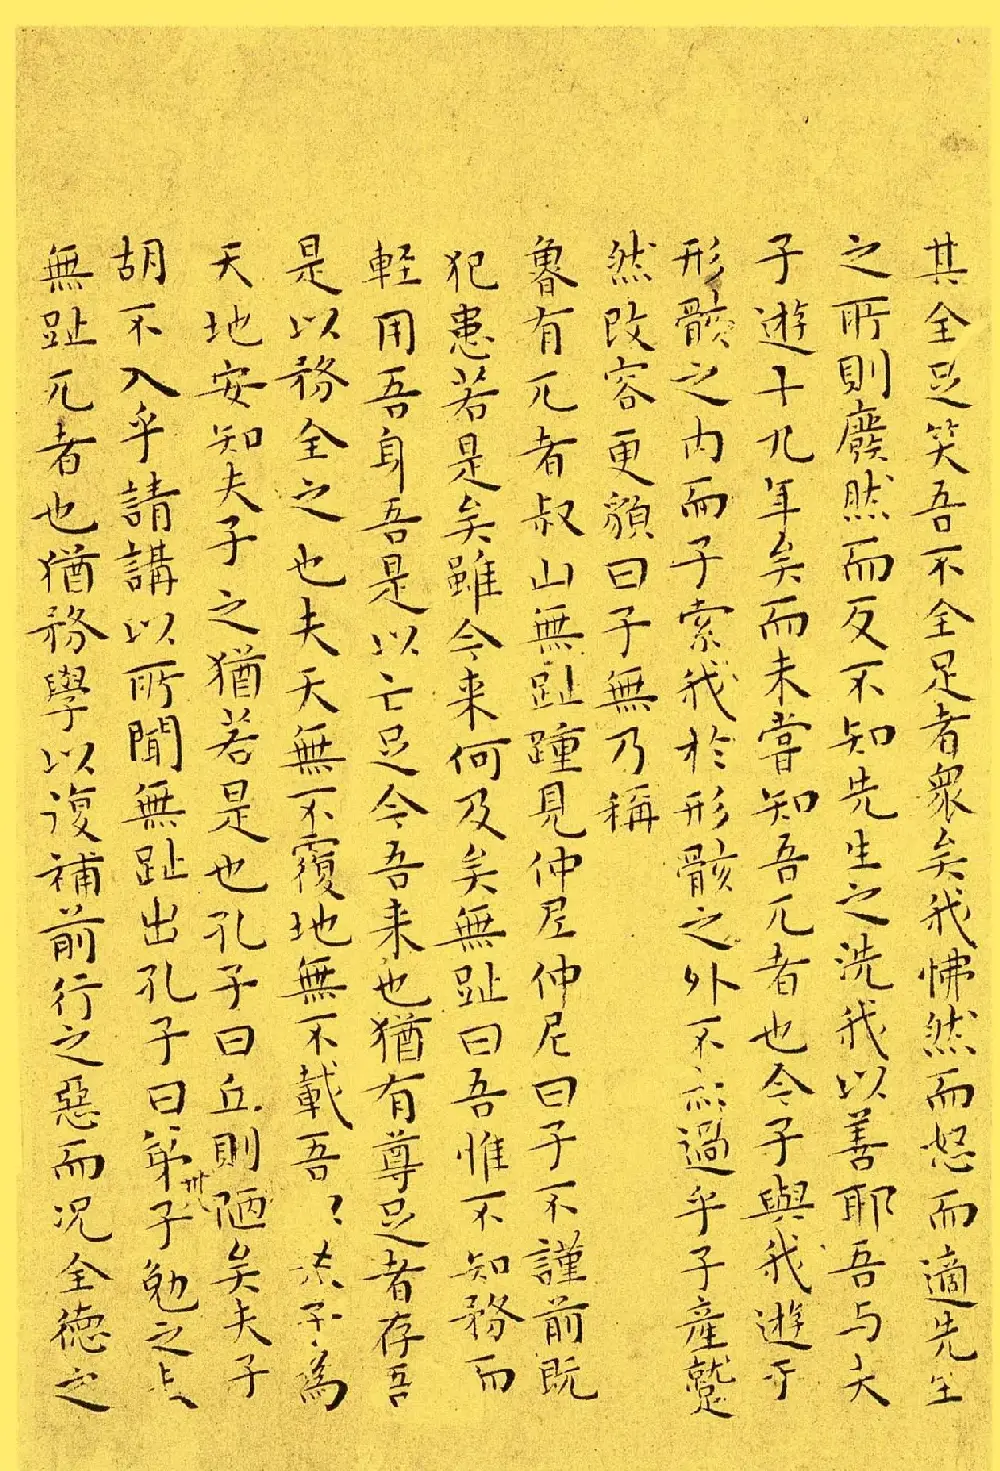 其全足笑吾不全足者衆矣我怫然而怒而適先生
之所則廢然而反不知先生之洗我以善耶吾与夫
子遊十九年矣而未嘗知吾兀者也今子與我遊于
形骸之内而子索我於形骸之外不亦過乎子産蹵
然改容更䫉曰子無乃稱
魯有兀者叔山無趾踵見仲尼仲尼曰子不謹前既
犯患若是矣雖今来何及矣無趾曰吾惟不知務而
輕用吾身吾是以亡足今吾来也猶有尊足者存吾
是以務全之也夫天無不覆地無不載吾夫子為
天地安知夫子之猶若是也孔子曰丘則陋矣夫子
胡不入乎請講以所聞無趾出孔子曰弟子勉之夫
卅
無趾兀者也猶務學以復補前行之惡而况全徳之